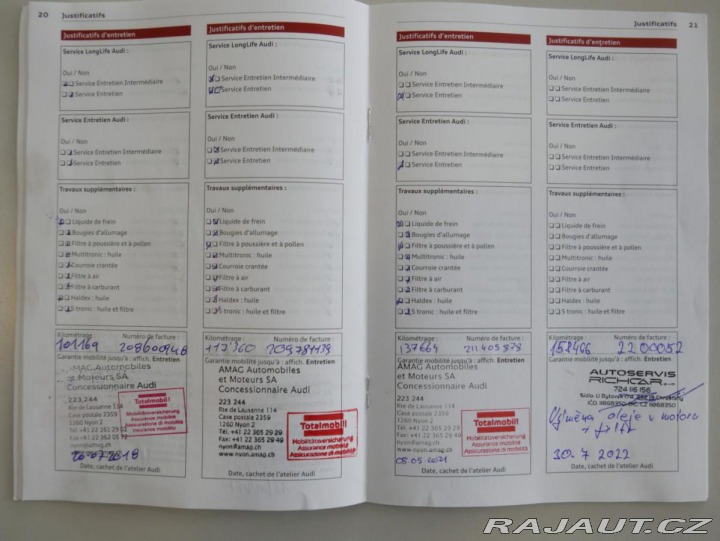 20 Justificatifs
Justificatifs d'entretien
Service LongLife Audi :
Oui / Non
Service Entretien Intermédiaire
Service Entretien
Service Entretien Audi :
Oui / Non
Service Entretien Intermédiaire
Service Entretien
Travaux supplémentaires :
Oui / Non
Liquide de frein
Bougies d'allumage
Filtre à poussière et à pollen
Multitronic : huile
Courroie crantée
Filtre à air
Filtre à carburant
Haldex : huile
S tronic : huile et filtre
Kilométrage : Numéro de facture :
101169
Garantie mobilité jusqu'à : affich. Entretien
AMAG Automobiles
et Moteurs SA
Concessionnaire Audi
223 244
Rte de Lausanne 114
Case postale 2359
1260 Nyon 2
nyon@amag.ch
Totalmobil!
Mobilitätsversicherung
Assurance mobilité
Assicurazione di mobilità
Mobility insurance
Date, cachet de l'atelier Audi
Justificatifs d'entretien
Service LongLife Audi :
Oui / Non
Service Entretien Intermédiaire
Service Entretien
Service Entretien Audi :
Oui / Non
Service Entretien Intermédiaire
Service Entretien
Travaux supplémentaires :
Oui / Non
Liquide de frein
Bougies d'allumage
Filtre à poussière et à pollen
Multitronic : huile
Courroie crantée
Filtre à air
Filtre à carburant
Haldex : huile
S tronic : huile et filtre
Kilométrage : Numéro de facture :
117360
Garantie mobilité jusqu'à : affich. Entretien
AMAG Automobiles
et Moteurs SA
Concessionnaire Audi
223 244
Rte de Lausanne 114
Case postale 2359
1260 Nyon 2
Tél. +41 22 365 29 29
Fax: +41 22 365 29 49
nyon@amag.ch
www.nyon.amag.ch
Totalmobil!
Mobilitätsversicherung
Assurance mobilité
Assicurazione di mobilità
Date, cachet de l'atelier Audi
Justificatifs 21
Justificatifs d'entretien
Service LongLife Audi :
Oui / Non
Service Entretien Intermédiaire
Service Entretien
Service Entretien Audi :
Oui / Non
Service Entretien Intermédiaire
Service Entretien
Travaux supplémentaires :
Oui / Non
Liquide de frein
Bougies d'allumage
Filtre à poussière et à pollen
Multitronic : huile
Courroie crantée
Filtre à air
Filtre à carburant
Haldex : huile
S tronic : huile et filtre
Kilométrage : Numéro de facture :
137664 211405878
Garantie mobilité jusqu'à : affich. Entretien
AMAG Automobiles
et Moteurs SA
Concessionnaire Audi
223 244
Rte de Lausanne 114
Case postale 2359
1260 Nyon 2
nyon@amag.ch
www.nyon.amag.ch
05.05.2021
Totalmobil!
Mobilitätsversicherung
Assurance mobilité
Assicurazione di mobilità
Date, cachet de l'atelier Audi
Justificatifs d'entretien
Service LongLife Audi :
Oui / Non
Service Entretien Intermédiaire
Service Entretien
Service Entretien Audi :
Oui / Non
Service Entretien Intermédiaire
Service Entretien
Travaux supplémentaires :
Oui / Non
Liquide de frein
Bougies d'allumage
Filtre à poussière et à pollen
Multitronic : huile
Courroie crantée
Filtre à air
Filtre à carburant
Haldex : huile
S tronic : huile et filtre
Kilométrage : Numéro de facture :
2200052
Garantie mobilité jusqu'à : affich. Entretien
AUTOSERVIS
RICHCAR
Výměna oleje v motoru
+ filtr
30.7 2022
Date, cachet de l'atelier Audi
RAJAUT.CZ